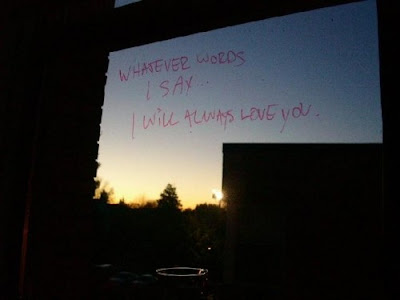 WHATEVER WORDS
I SAY...
I WILL ALWAYS LOVE YOU.